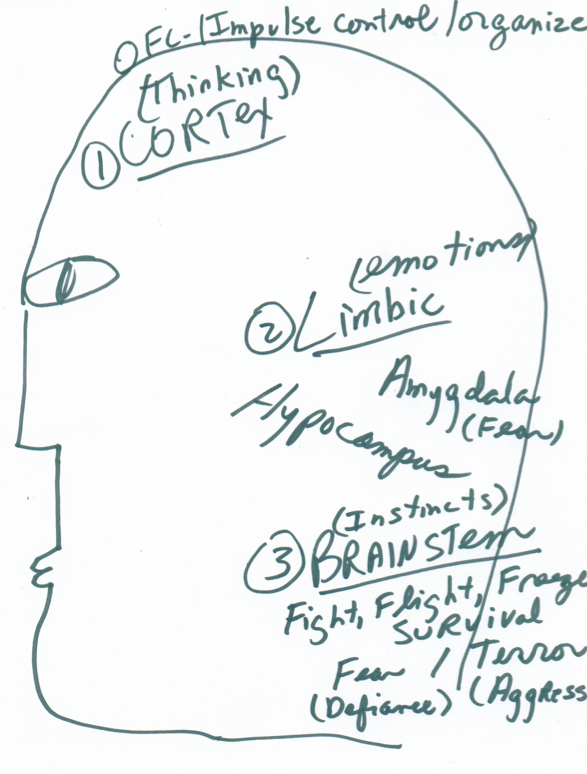 OFC-/Impulse control/organize
(Thinking)
① CORTEX
(emotions)
② Limbic
Amygdala
(Fear)
Hypocampus
(Instincts)
③ BRAINSTEM
Fight, Flight, Freeze
SURvival
Fear / Terror
(Defiance) (Aggress